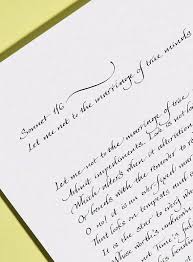 Sonnet 116
Let me not to the marriage of true minds
Let me not to the marriage of true
Admit impediments. Love is not lov
Which alters when it alteration
Or bends with the remover to re
O no! it is an ever-fixed mar
That looks on tempests and is
It is the star to every wand
Whose worth's unknown
not Time's f